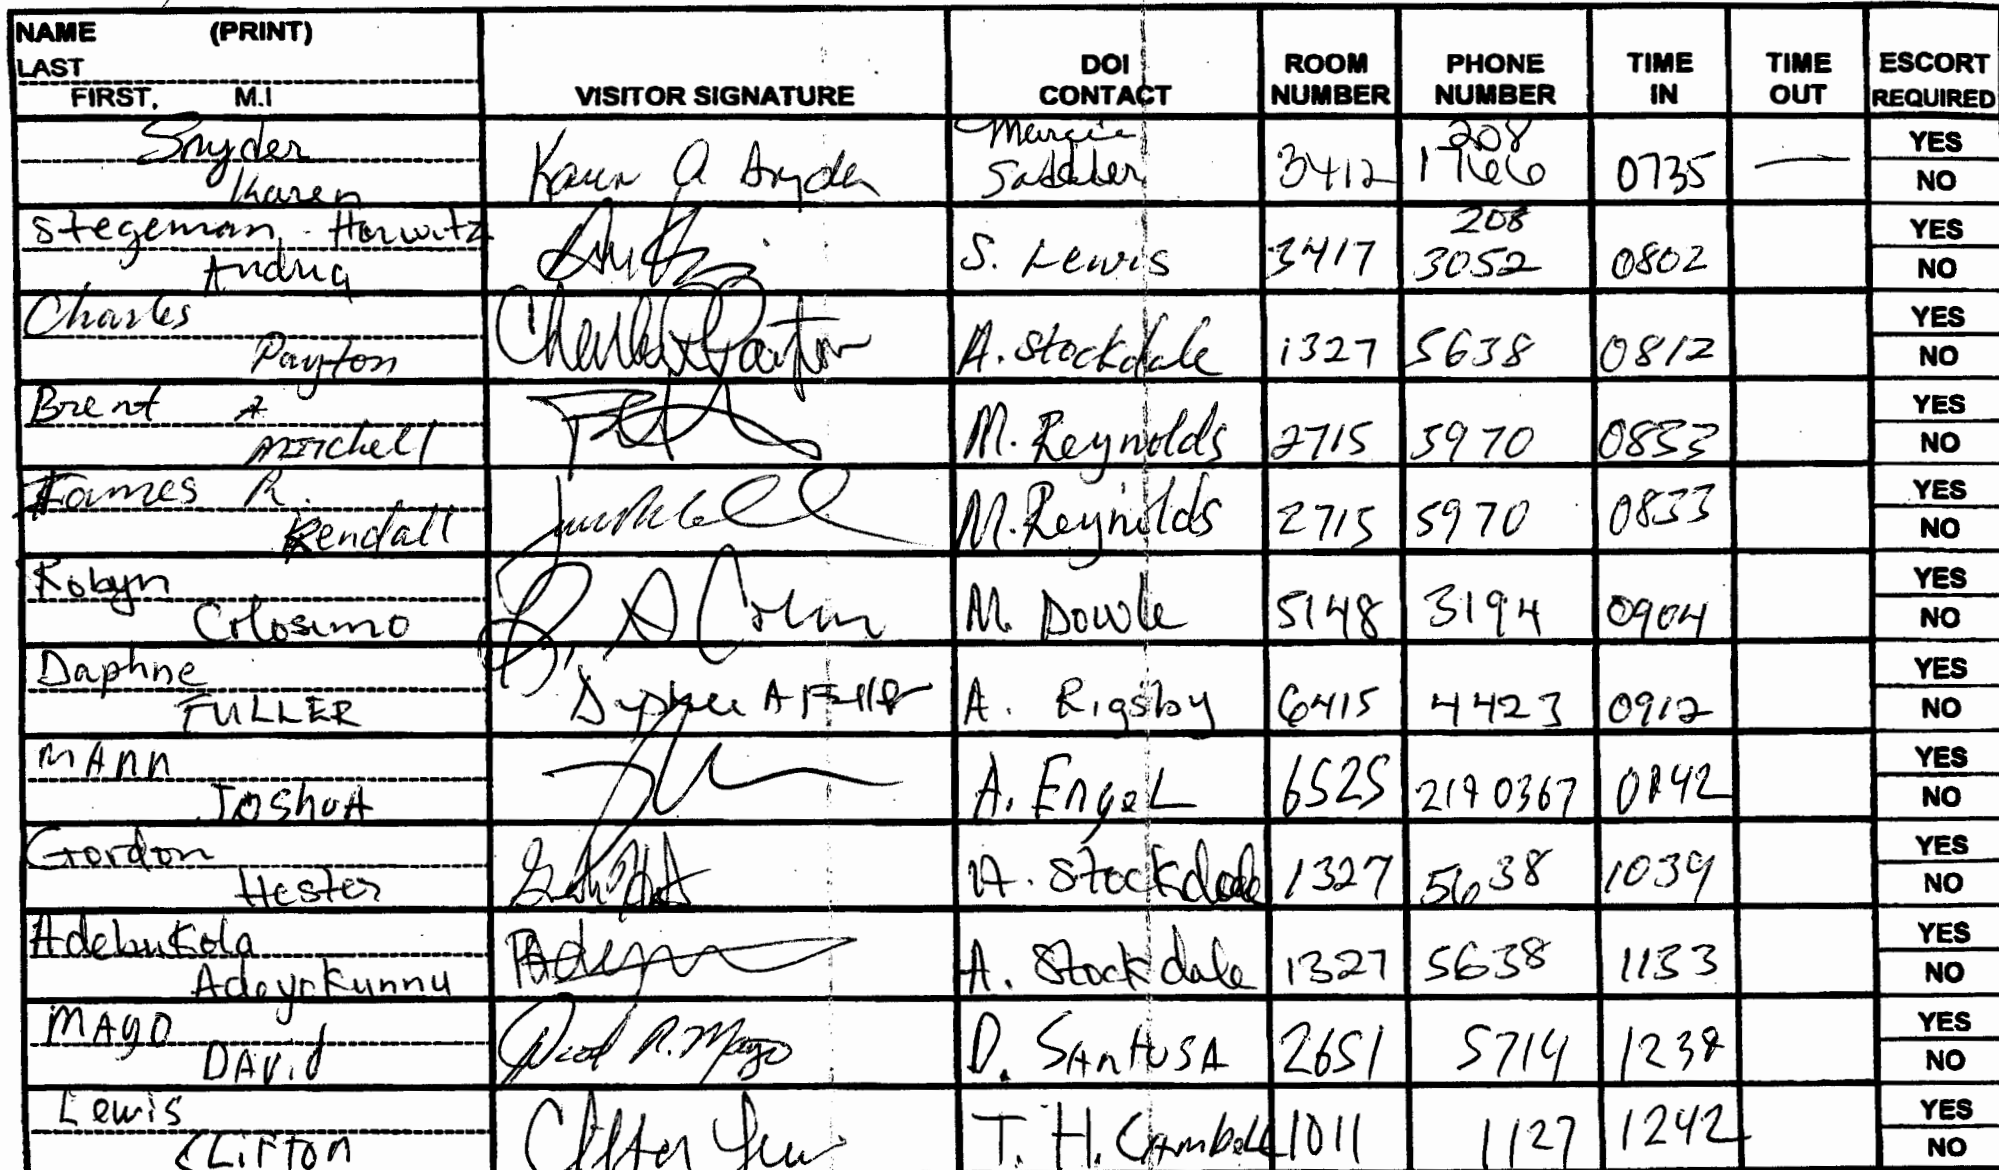 NAME (PRINT)
LAST
FIRST, M.I
VISITOR SIGNATURE
DOI CONTACT
ROOM NUMBER
PHONE NUMBER
TIME IN
TIME OUT
ESCORT REQUIRED
Snyder
Karen
Karen A Snyder
3412
208
1766
0735
YES
NO
Stegeman-Horwitz
Andria
S. Lewis
3417
208
3052
0802
YES
NO
Charles
Payton
A. Stockdale
1327
5638
0812
YES
NO
Brent A
Mitchell
M. Reynolds
2715
5970
0833
YES
NO
James R.
Kendall
M. Reynolds
2715
5970
0833
YES
NO
Robyn
Colosimo
M. Dowle
5148
3194
0904
YES
NO
Daphne
FULLER
Daphne A Fuller
A. Rigsby
6415
4423
0912
YES
NO
MAnn
JoshuA
A. EngeL
6525
2190367
YES
NO
Gordon
Hester
A. Stockdale
1327
5638
1039
YES
NO
Adebukola
Adeyokunnu
A. Stockdale
1327
5638
1133
YES
NO
MAyO
DAvid
David R. Mayo
D. SAntUSA
2651
5714
YES
NO
Lewis
CLifTon
T. H. Cambell
1011
1127
1242
YES
NO